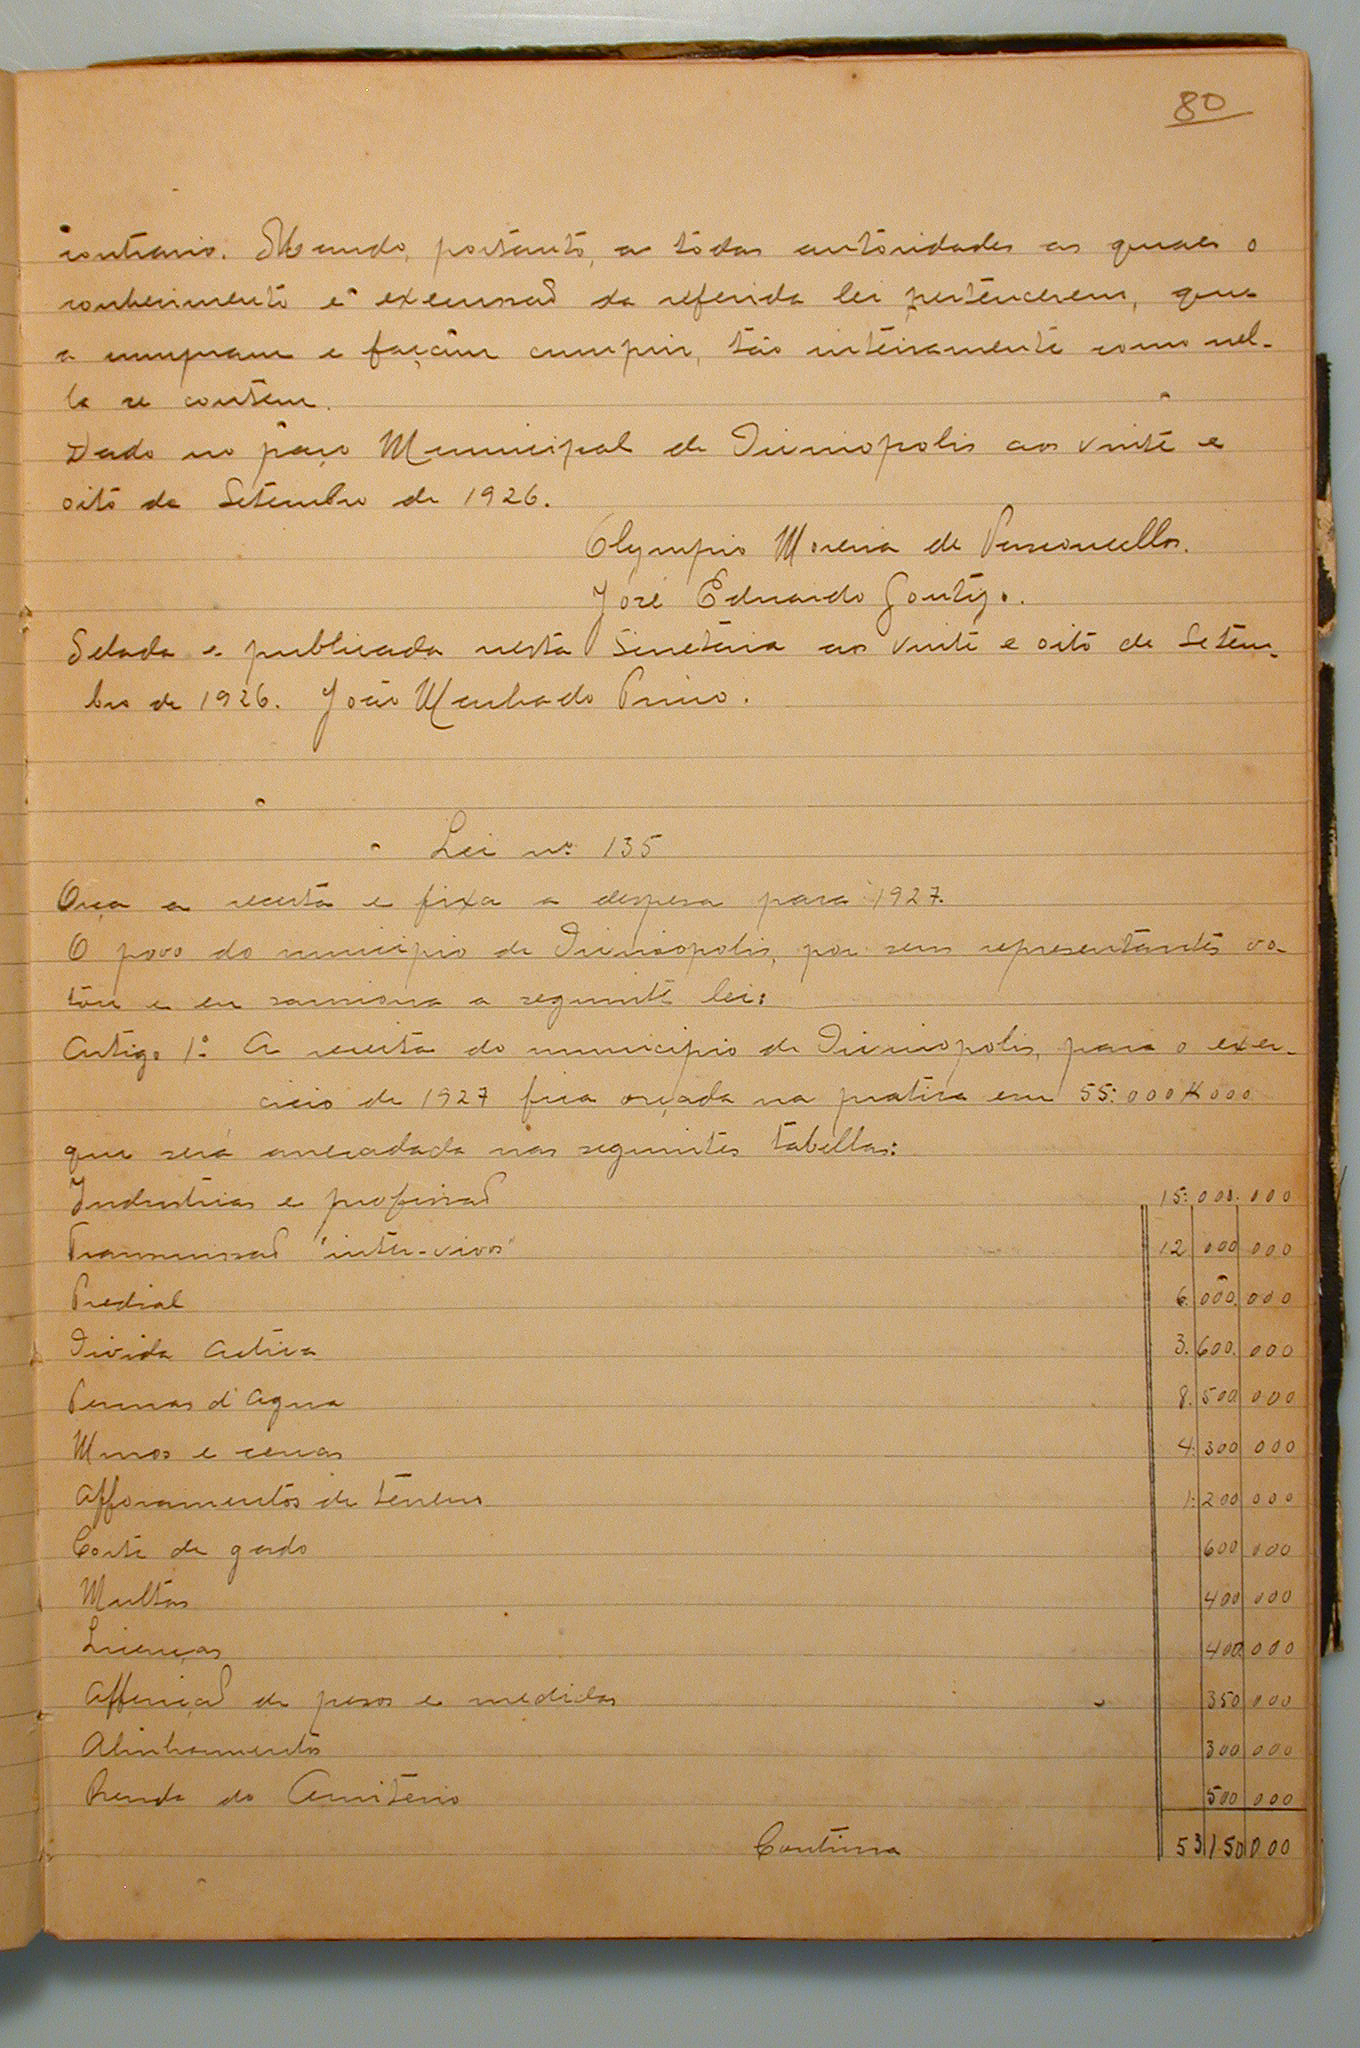 80
contrario. Mando, portanto, a todas autoridades as quaes o
conhecimento e execussão da referida lei pertencerem, que
a cumpram e façam cumprir, tão inteiramente como nel-
la se contem.
Dado no paço Municipal de Divinopolis aos vinte e
oito de Setembro de 1926.
Olympio Moreira de Vasconcellos.
José Eduardo Gontijo.
Selada e publicada nesta Secretaria aos vinte e oito de Setem-
bro de 1926. João Machado Primo.
Lei nº 135
Orça a receita e fixa a despesa para 1927.
O povo do municipio de Divinopolis, por seus representantes vo-
tou e eu sancciono a seguinte lei:
Artigo 1º. A receita do municipio de Divinopolis, para o exer-
cicio de 1927 fica orçada na pratica em 55:000$000
que será arrecadada nas seguintes tabellas:
Industrias e profissão 15:000.000
Transmissão "inter-vivos" 12.000 000
Predial 6.000.000
Divida Activa 3.600.000
Pennas d'Agua 8.500 000
Muros e cercas 4.300 000
Afforamentos de terreno 1:200 000
Corte de gado 600 000
Multas 400 000
Licenças 400 000
Afferição de pesos e medidas 350 000
Alinhamentos 300 000
Renda do Cemiterio 500 000
Continua 53 150 000